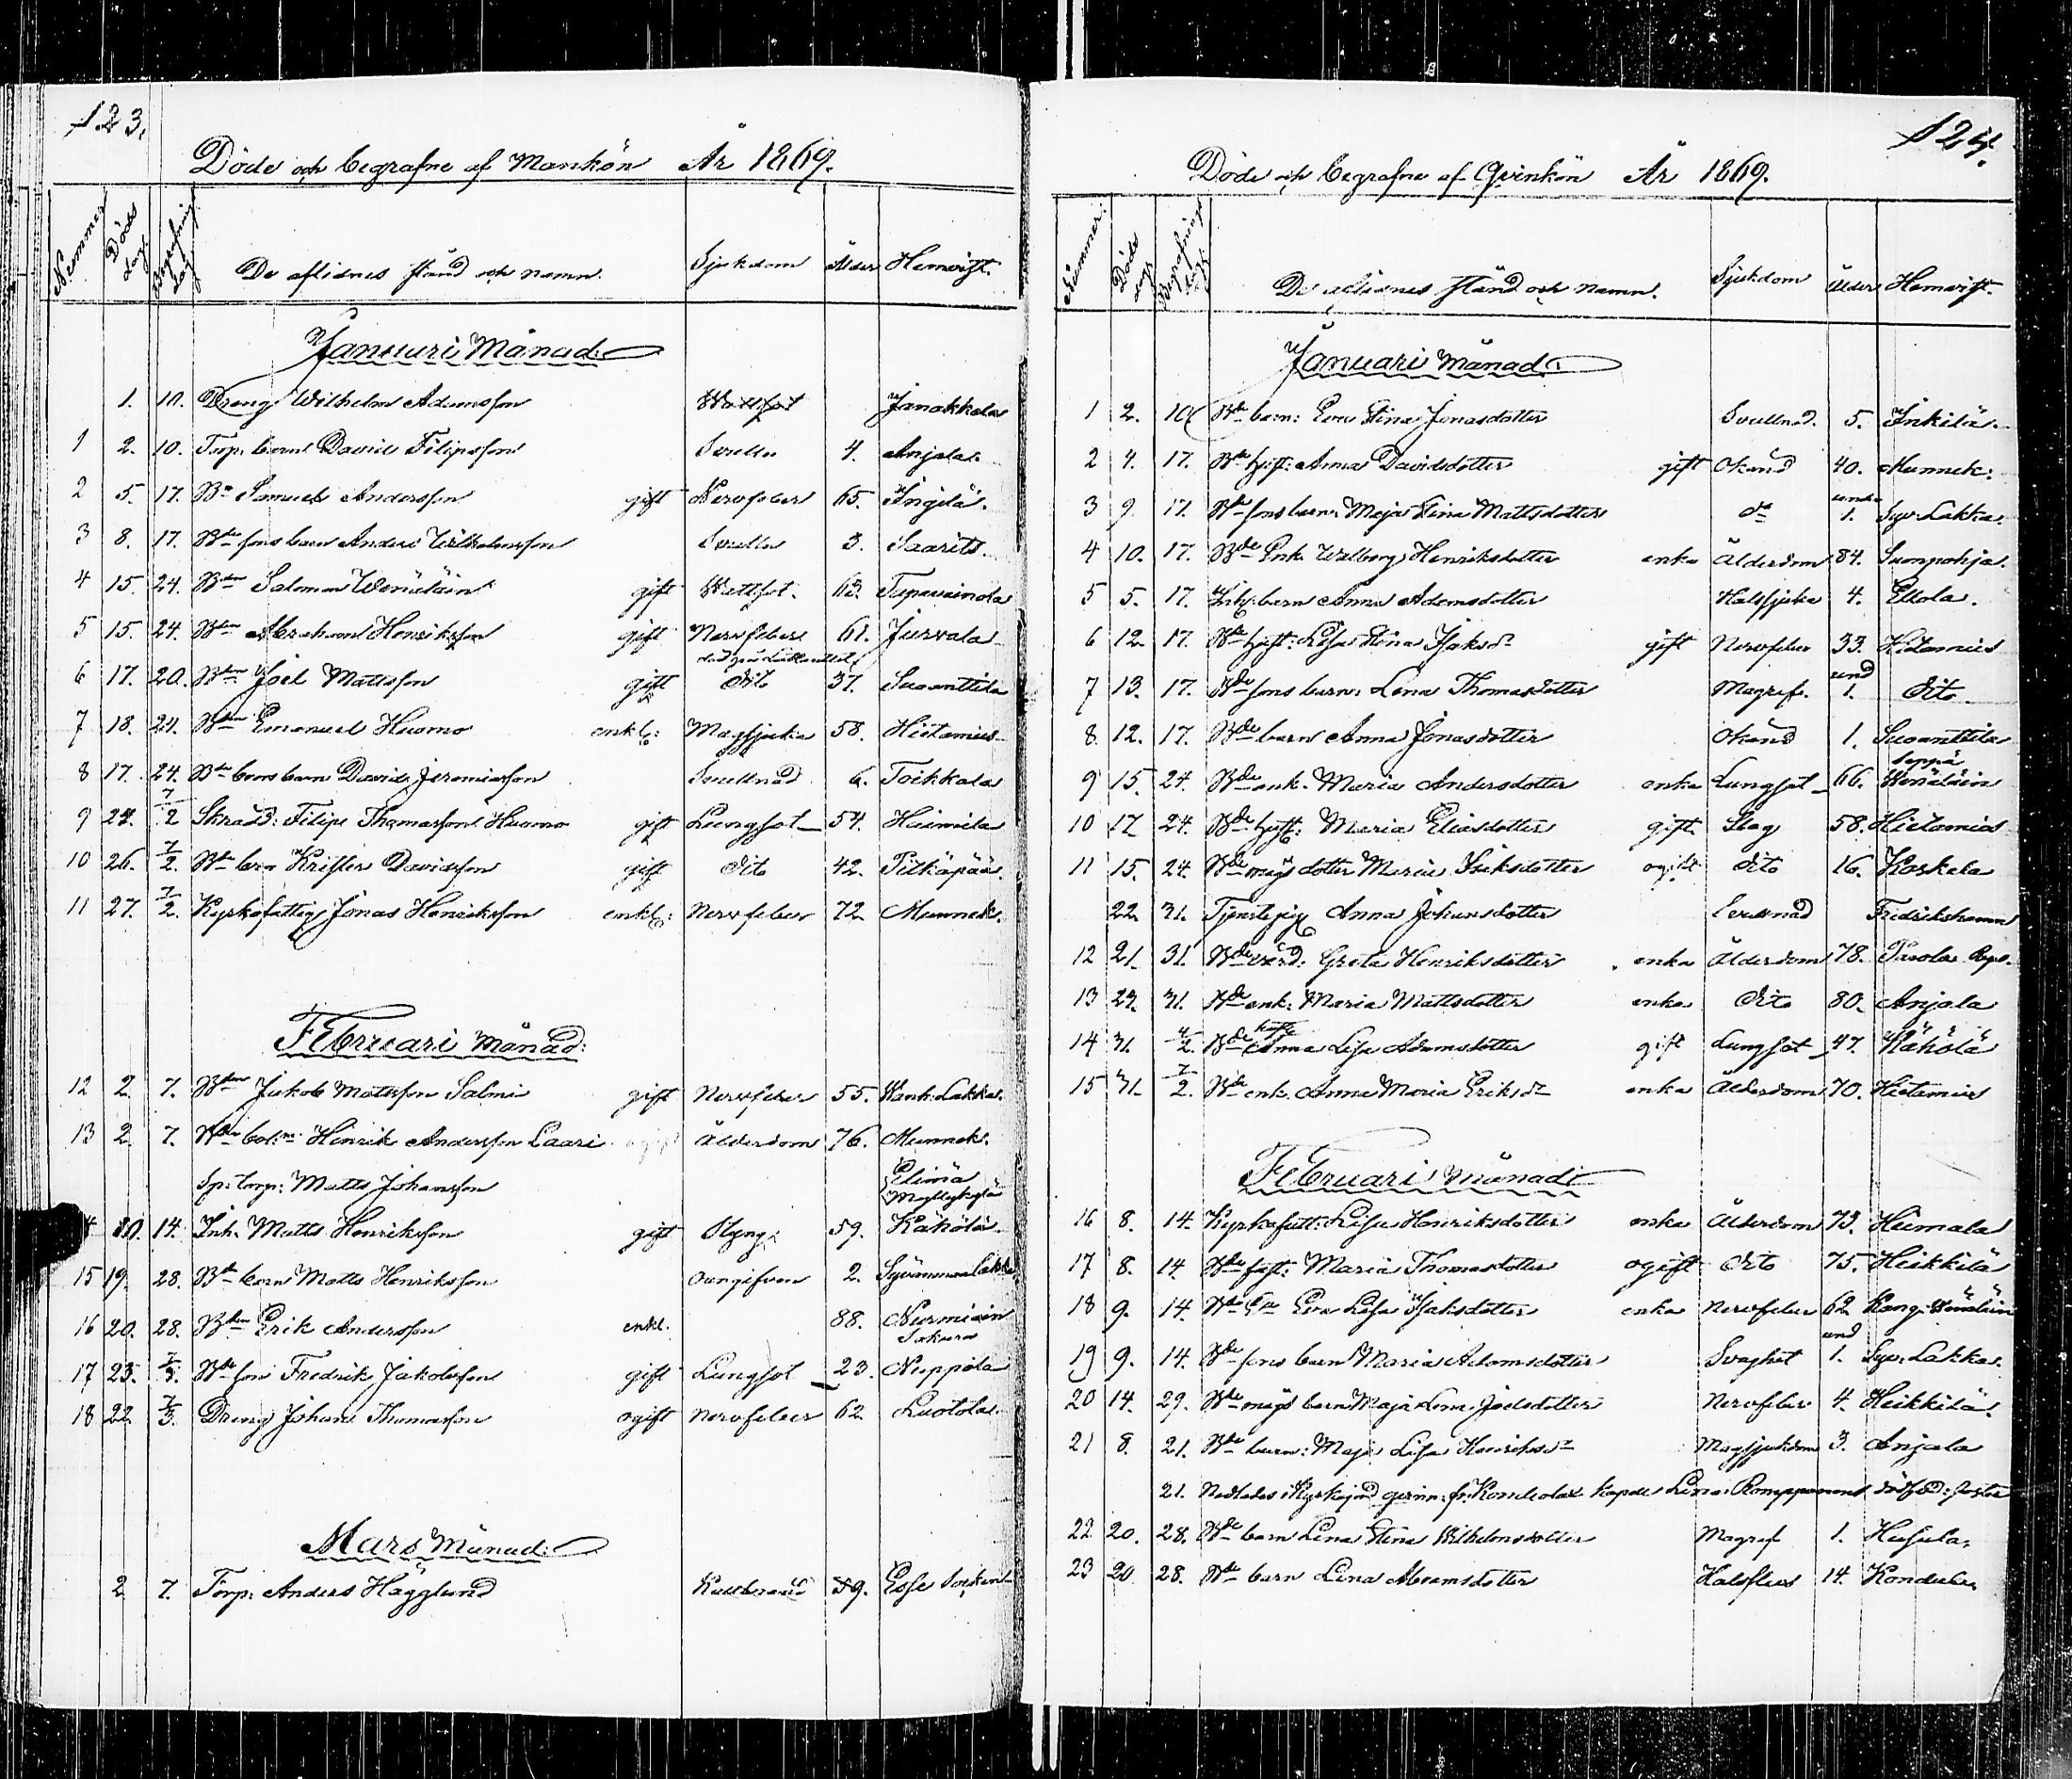 123.
Döde och begrafne af Mankön År 1869.
Nummer Döds dag. Begrafnings dag De aflidnes stånd och namn. Sjukdom Ålder Hemvist.
Januari Månad:
1. 10. Dreng Wilhelm Adamsson Janakkala
1 2. 10. Torp. barn David Filipsson Svulln 4. Anjala.
2 5. 17. Bn Samuel Andersson gift Nervfeber 65. Ingilä.
3 8. 17. Bde sons barn Anders Wilhelmsson Svulln 3. Saarits.
4 15. 24. Bden Salomon Wenäläin gift Wattsot. 63. Tupavainola
5 15. 24. Bden Abraham Henriksson gift Nervfeber 61. Jurvala
6 17. 20. Bden Joel Mattsson gift dito 37. Suoanttila
7 18. 24. Bden Emanuel Huomo enkl: Magsjuka 58. Hietamies
8 17. 24. Bde sons barn David Jeremiasson Svullnad 6. Toikkala
9 24. 7/2 Skrädd: Filip Thomasson Huomo gift Lungsot 54. Haimila
10 26. 7/2. Bde bro Krister Davidsson gift dito 42. Pitkäpää.
11 27. 7/2. Kyrkofattig Jonas Henriksson enkl: Nervfeber 72. Munnek.
Februari Månad:
12 2. 7. Bden Jakob Mattsson Salmi gift Nervfeber 55. Wanh. Lakka.
13 2. 7. Bde bol:n: Henrik Andersson Laari Ålderdom 76. Munnek.
Sp: torp: Matts Johansson Elimä Myllykylä
10. 14. Inh. Matts Henriksson gift 59. Kähölä.
15 19. 28. Bde barn Matts Henriksson Oangifven 2. Lakka
16 20. 28. Bden Erik Andersson enkl. 88. Nurmiain Sakara
17 23. 7/3. Bde son Fredrik Jakobsson gift Lungsot 23. Nuppola
18 22. 7/3. Dreng Johan Thomasson ogift Nervfeber 62. Luotola.
Mars Månad:
2 7. Torp: Anders Hägglund Kallbrand 59. Esse Socken
124.
Döde och begrafne af Qvinkön År 1869.
Nummer: Döds dag. Begrafnings dag. De aflidnes stånd och namn. Sjukdom Ålder Hemvist.
Januari Månad:
1 2. 10. Bde barn: Eva Stina Jonasdotter Svullnad. 5. Inkilä.
2 4. 17. Bde hust: Anna Davidsdotter gift Okänd 40. Munnek:
3 9. 17. Bde sons barn: Maja Stina Mattsdotter do under 1. Syv. Lakka.
4 10. 17. Bde Enk. Walborg Henriksdotter enka Ålderdom 84. Suonpohja.
5 5. 17. Inh: barn Anna Adamsdotter Halssjuka 4. Eskola.
6 12. 17. Bde hust: Lisa Stina Isaksdr gift Nervfeber 33. Hietamies
7 13. 17. Bde sons barn: Lena Thomasdotter Magref. und 1. dito.
8. 12. 17. Bde barn Anna Jonasdotter Okänd 1. Suoanttila
9 15. 24. Bde enk. Maria Andersdotter enka Lungsot 66. Seppä Wenäläin
10 17 24. Bde hust: Maria Eliasdotter gift Slag 58. Hietamies
11 15. 24. Bde mågs dotter Maria Eriksdotter ogift dito 16. Koskela
22. 31. Tjenstepig Anna Johansdotter Svullnad Fredrikshamn
12 21. 31. Bde värd: Greta Henriksdotter enka Ålderdom 78. Pasola Rep.
13 24. 31. Bde enk: Maria Mattsdotter enka dito 80. Anjala
14 31. 7/2. Bde hust Anna Lisa Adamsdotter gift Lungsot 47. Kähölä
15 31. 7/2. Bde enk. Anna Maria Eriksdr enka Ålderdom 70. Hietamies
Februari Månad:
16 8. 14. Kyrkofatt: Lisa Henriksdotter enka Ålderdom 73. Heimala
17 8. 14. Bde syst: Maria Thomasdotter ogift dito 75. Heikkilä
18 9. 14. Bde Eva Lisa Isaksdotter enka Nervfeber 62 Kang. Wenäläin
19 9. 14. Bde sons barn Maria Adamsdotter Svaghet und 1. Syv. Lakka.
20 14. 29. Bde mågs barn Maja Lena Joelsdotter Nervfeber 4. Heikkilä.
21 8. 21. Bde barn: Maja Lisa Henriksdr Magsjukdom 3. Anjala
21. Nedlades i Kyrkojord qvinn: fr: Kontiolax kapell Lena Romppanens dödfödd: foster
22 20. 28. Bde barn Lena Stina Wilhelmsdotter Magref 1. Husula.
23 20 28. Bde barn Lena Abramsdotter Halsfluss 14.